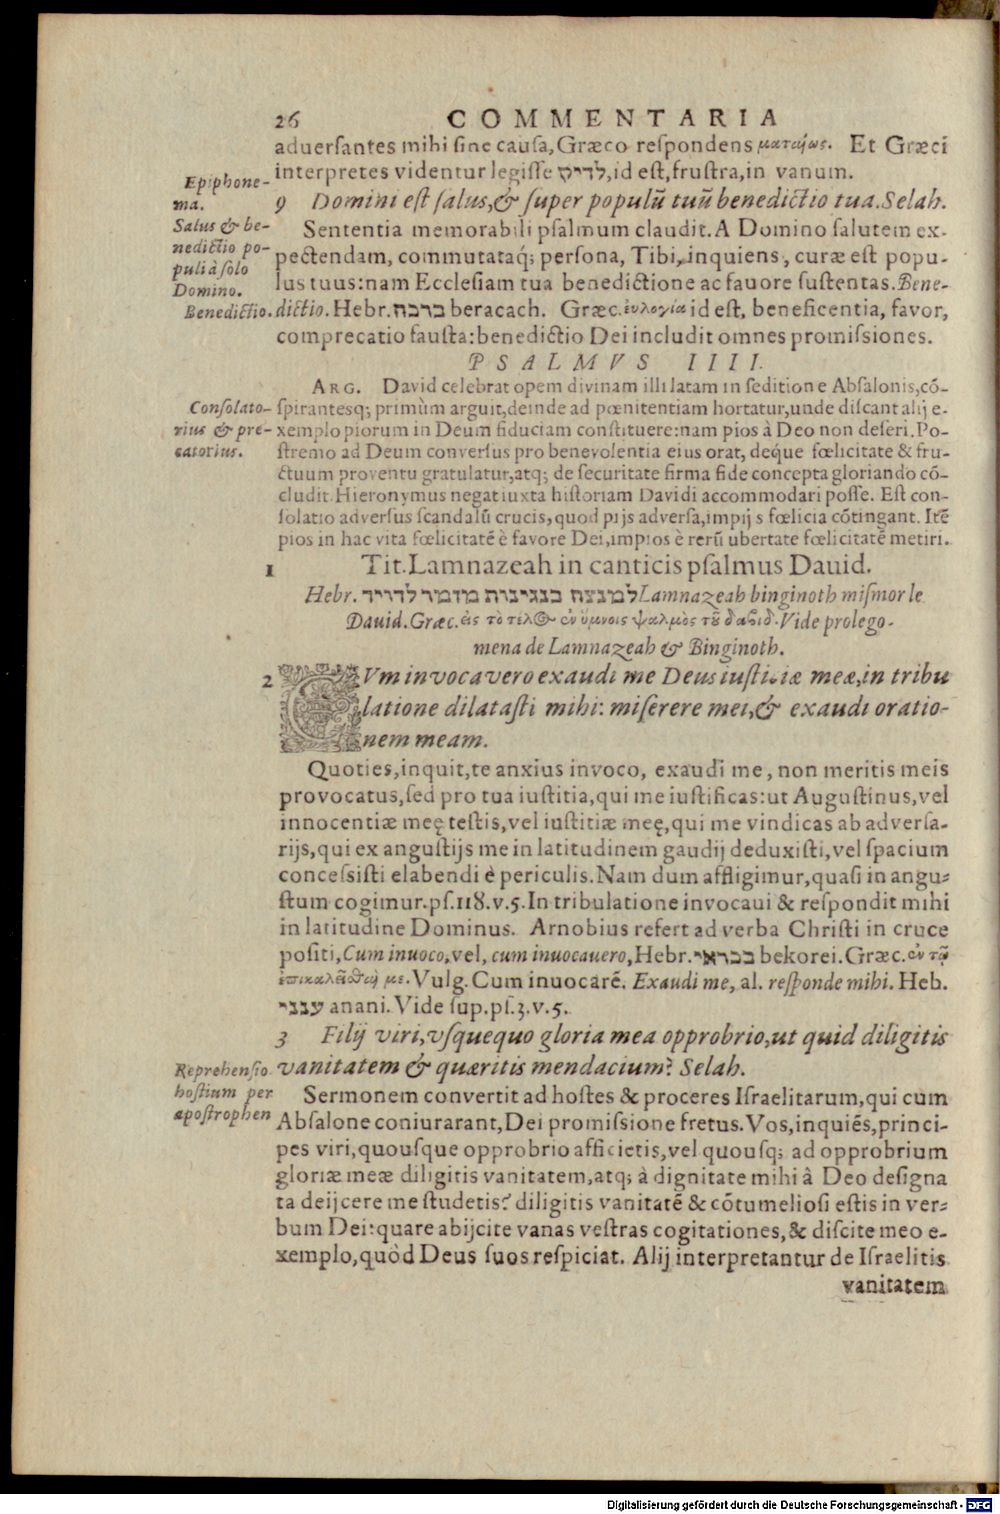 26 COMMENTARIA
aduersantes mihi sine causa, Græco respondens ματαίως. Et Græci
interpretes videntur legisse לריק, id est, frustra, in vanum.
Epiphone-
ma.
9 Domini est salus, & super populū tuū benedictio tua. Selah.
Salus & be-
nedictio po-
puli à solo
Domino.
Sententia memorabili psalmum claudit. A Domino salutem ex-
pectendam, commutataq́; persona, Tibi, inquiens, curæ est popu-
lus tuus: nam Ecclesiam tua benedictione ac fauore sustentas. Bene-
Benedictio.
dictio. Hebr. ברכה beracach. Græc. ἐυλογία id est, beneficentia, favor,
comprecatio fausta: benedictio Dei includit omnes promissiones.
PSALMVS IIII.
ARG. David celebrat opem divinam illi latam in seditione Absalonis, cō-
Consolato-
rius & pre-
catorius.
spirantesq; primùm arguit, deinde ad pœnitentiam hortatur, unde discant alij e-
xemplo piorum in Deum fiduciam constituere: nam pios à Deo non deseri. Po-
stremo ad Deum conversus pro benevolentia eius orat, deque fœlicitate & fru-
ctuum proventu gratulatur, atq; de securitate firma fide concepta gloriando cō-
cludit. Hieronymus negat iuxta historiam Davidi accommodari posse. Est con-
solatio adversus scandalū crucis, quod pijs adversa, impijs fœlicia cōtingant. Itē
pios in hac vita fœlicitatē è favore Dei, impios è rerū ubertate fœlicitatē metiri.
1 Tit. Lamnazeah in canticis psalmus Dauid.
Hebr. למנצח בנגינות מזמור לדויד Lamnazeah binginoth mismor le
Dauid. Græc. εἰς τὸ τέλος ἐν ὕμνοις ψαλμὸς τοῦ δαβίδ. Vide prolego-
mena de Lamnazeah & Binginoth.
2 CVm invocavero exaudi me Deus iustitiæ meæ, in tribu
latione dilatasti mihi: miserere mei, & exaudi oratio-
nem meam.
Quoties, inquit, te anxius invoco, exaudi me, non meritis meis
provocatus, sed pro tua iustitia, qui me iustificas: ut Augustinus, vel
innocentiæ meę testis, vel iustitiæ meę, qui me vindicas ab adversa-
rijs, qui ex angustijs me in latitudinem gaudij deduxisti, vel spacium
concessisti elabendi è periculis. Nam dum affligimur, quasi in angu-
stum cogimur. ps. 118. v. 5. In tribulatione invocaui & respondit mihi
in latitudine Dominus. Arnobius refert ad verba Christi in cruce
positi, Cum inuoco, vel, cum inuocauero, Hebr. בקראי bekorei. Græc. ἐν τῷ
ἐπικαλεῖσθαί με. Vulg. Cum inuocarē. Exaudi me, al. responde mihi. Heb.
ענני anani. Vide sup. ps. 3. v. 5.
3 Filij viri, vsquequo gloria mea opprobrio, ut quid diligitis
vanitatem & quæritis mendacium? Selah.
Reprehensio
hostium per
apostrophen
Sermonem convertit ad hostes & proceres Israelitarum, qui cum
Absalone coniurarant, Dei promissione fretus. Vos, inquiēs, princi-
pes viri, quousque opprobrio afficietis, vel quousq; ad opprobrium
gloriæ meæ diligitis vanitatem, atq; à dignitate mihi à Deo designa
ta deijcere me studetis? diligitis vanitatē & cōtumeliosi estis in ver-
bum Dei: quare abijcite vanas vestras cogitationes, & discite meo e-
xemplo, quòd Deus suos respiciat. Alij interpretantur de Israelitis
vanitatem
Digitalisierung gefördert durch die Deutsche Forschungsgemeinschaft - DFG